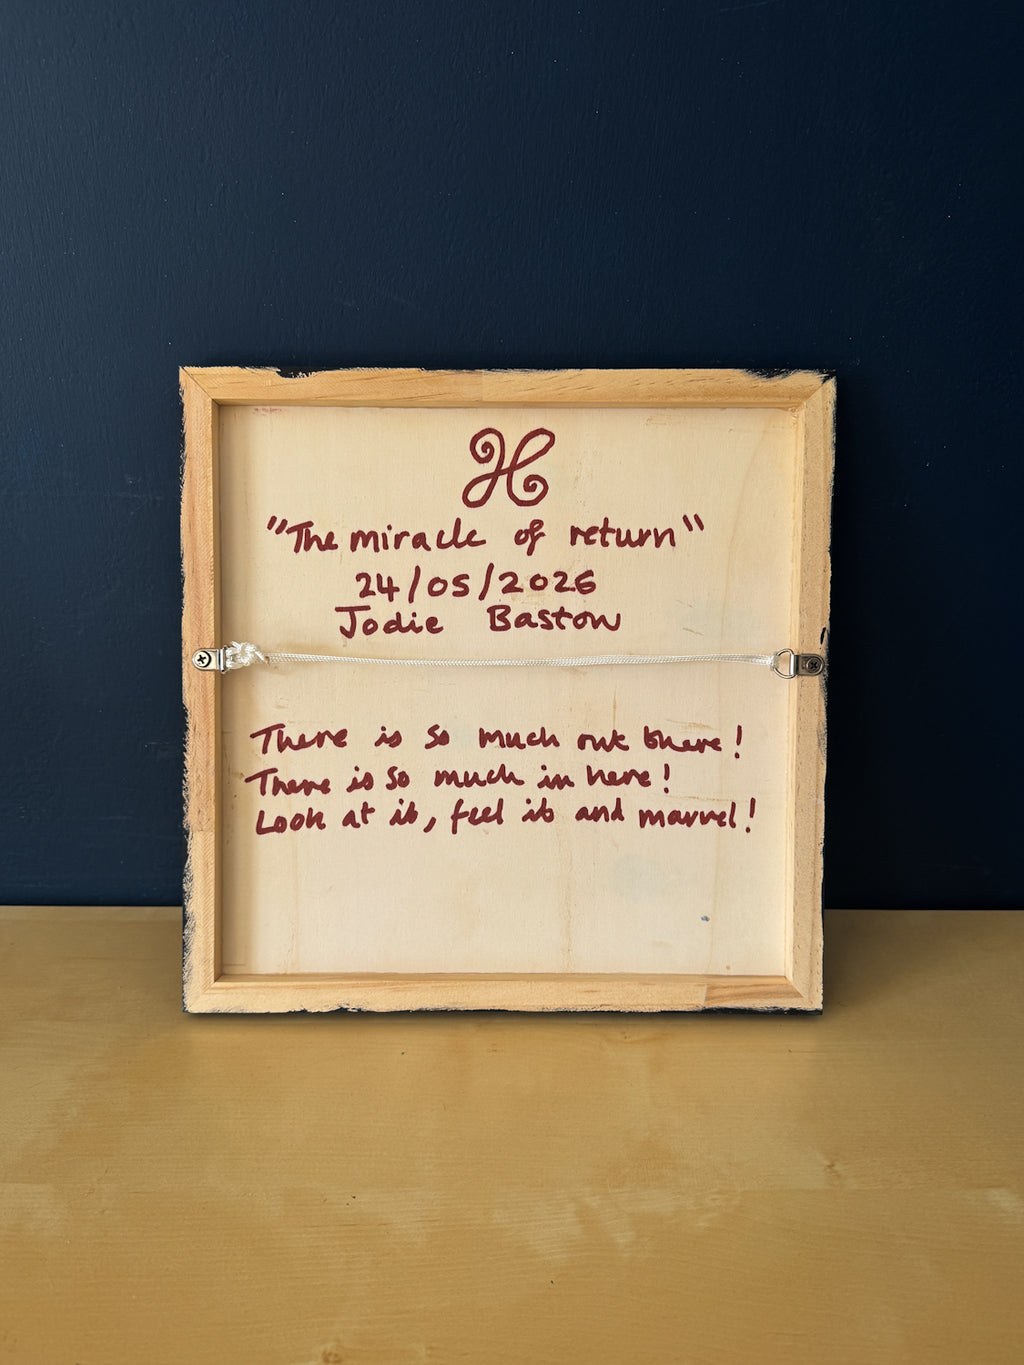 "The miracle of return"
24/05/2026
Jodie Bastow
There is so much out there!
There is so much in here!
Look at it, feel it and marvel!